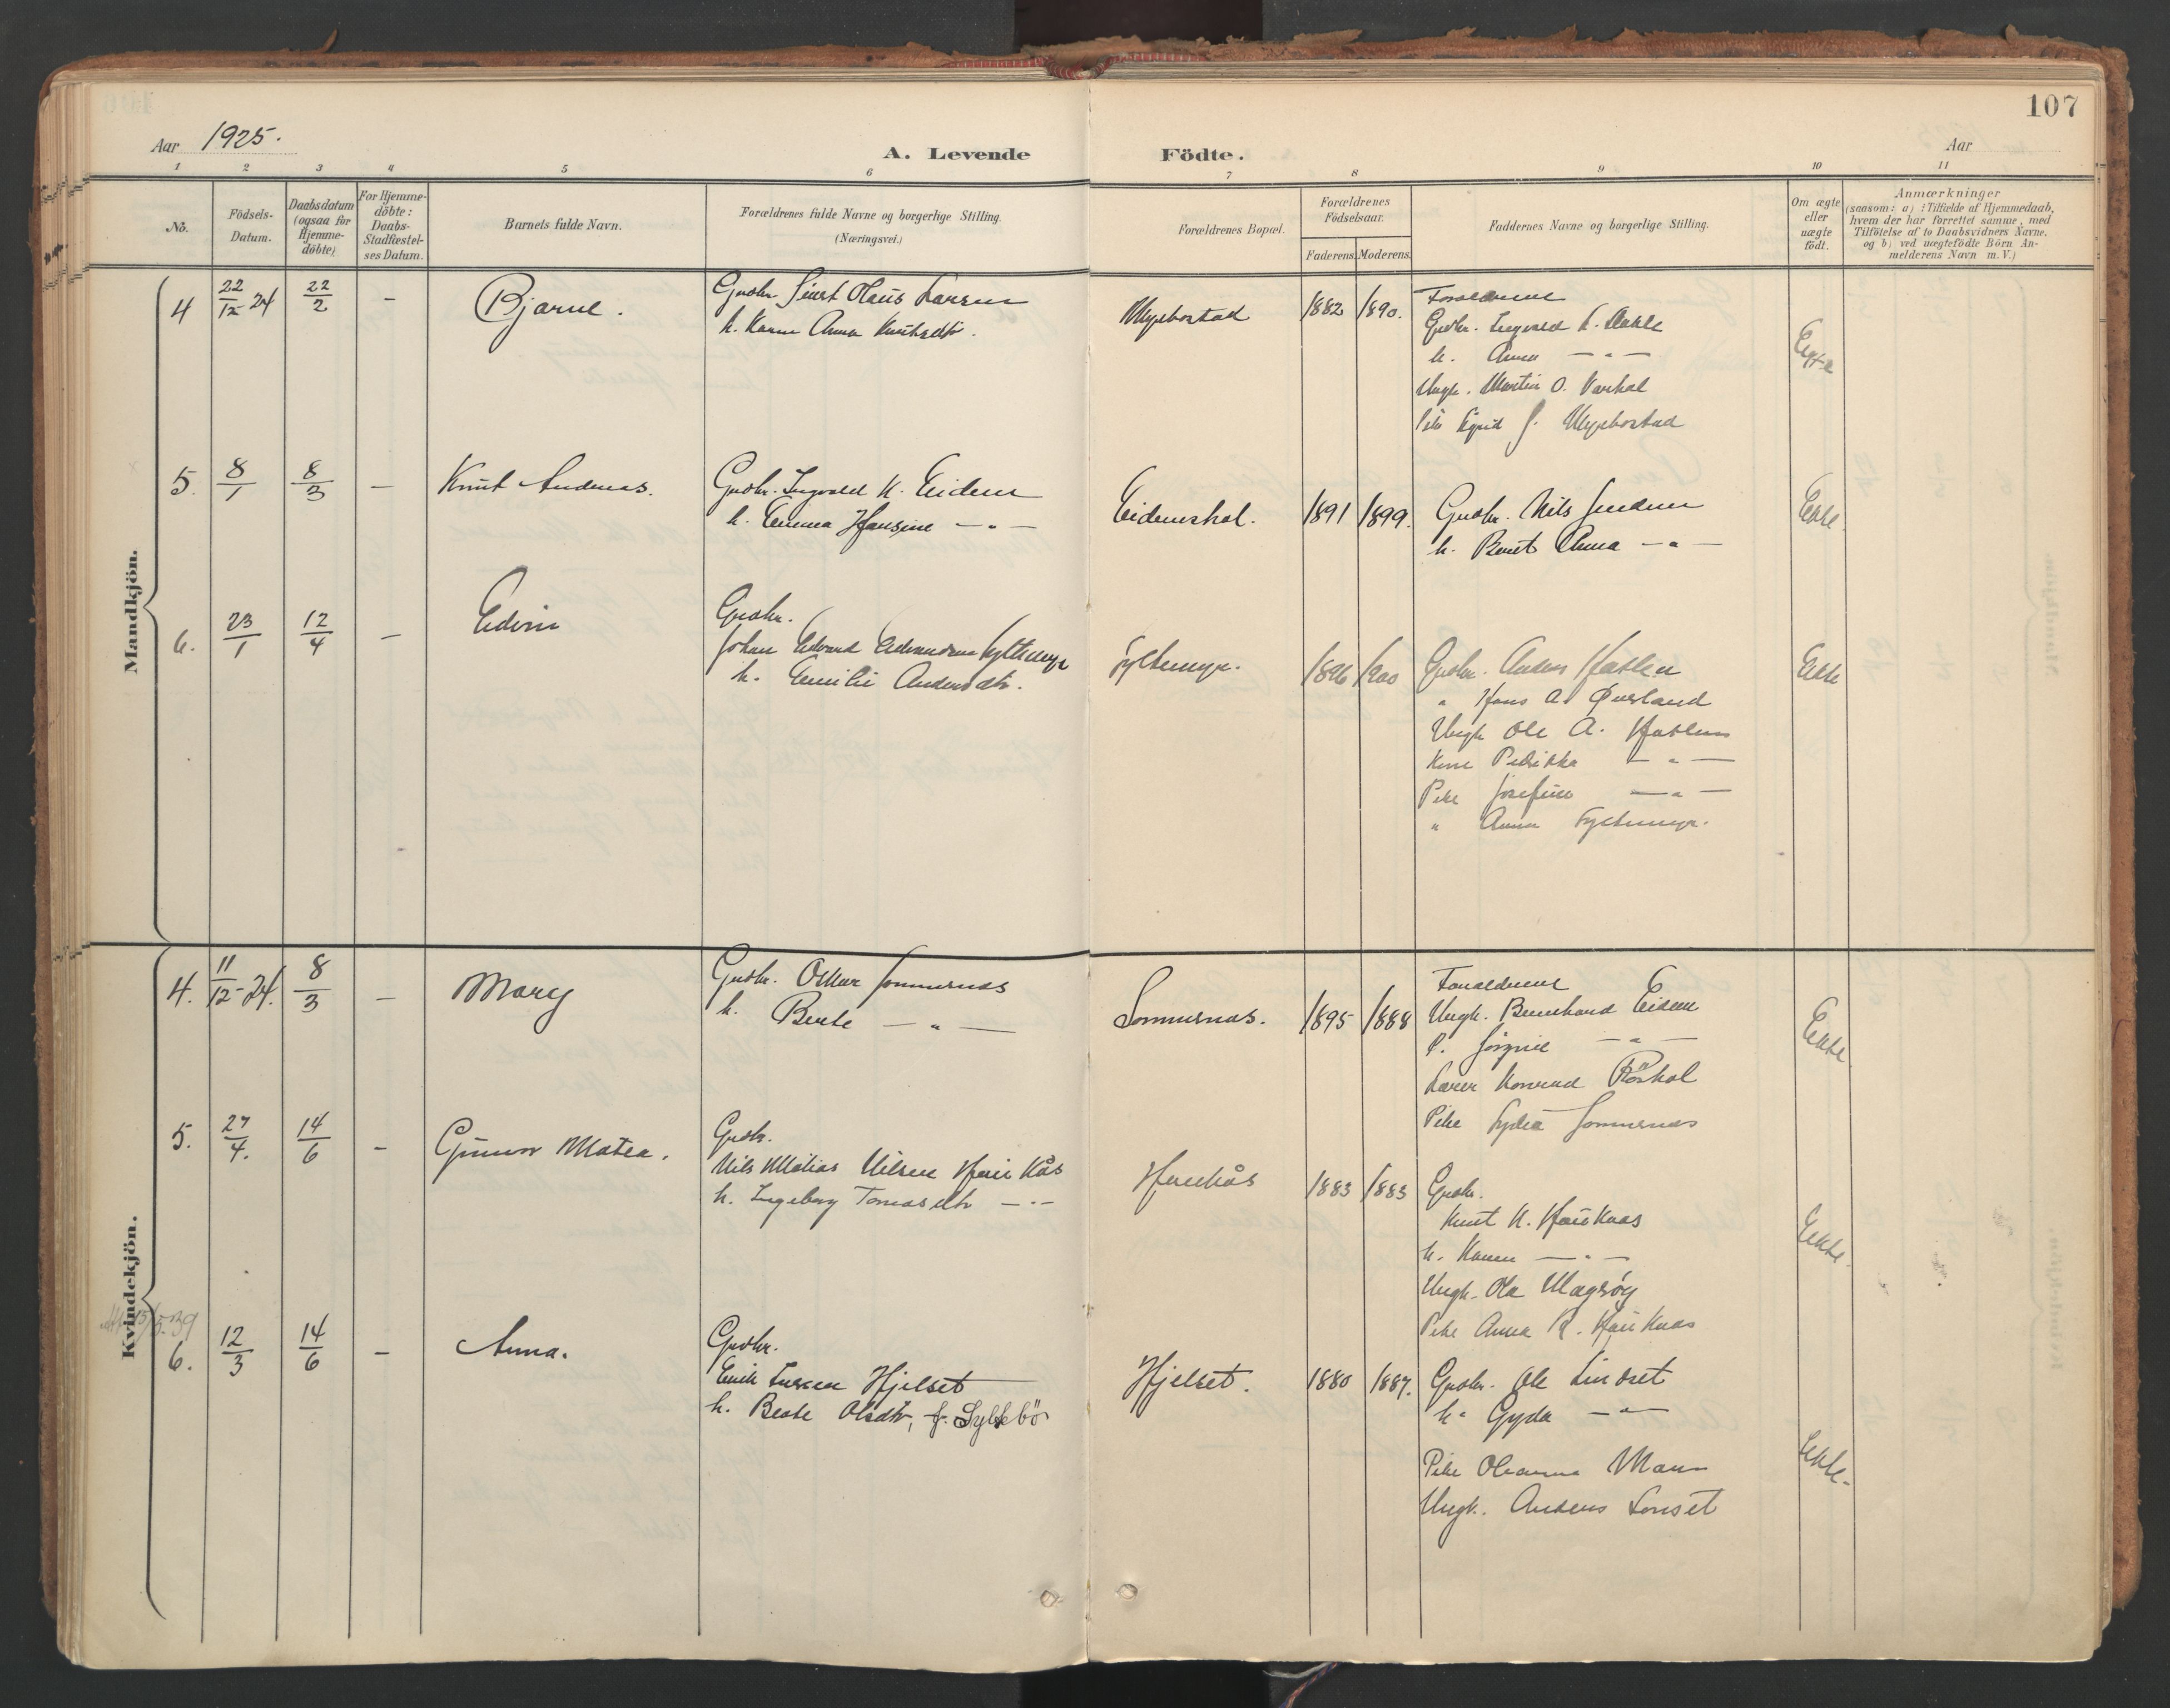 107
Aar 1925.
A. Levende Födte.
Aar
1 2 3 4 5 6 7 8 9 10 11
No.
Födsels-
Datum.
Daabsdatum
(ogsaa for
Hjemme-
döbte).
For Hjemme-
döbte:
Daabs-
Stadfæstel-
ses Datum.
Barnets fulde Navn.
Forældrenes fulde Navne og borgerlige Stilling.
(Næringsvei.)
Forældrenes Bopæl.
Forældrenes
Födselsaar.
Faderens. Moderens.
Faddernes Navne og borgerlige Stilling.
Om ægte
eller
uægte
födt.
Anmærkninger
(saasom: a) i Tilfælde af Hjemmedaab,
hvem der har forrettet samme, med
Tilföielse af to Daabsvidners Navne,
og b) ved uægtefödte Börn An-
melderens Navn m. V.)
Mandkjön.
4 22/12-24 22/2 - Bjarne.
Gudbr. Sivert Olaus Larsen
h. Karen Anna Knutsdtr.
Myrbostad 1882 1890.
Foreldrene
Gudbr. Ingvald
h. Anna - " -
Ungk. Martin O. Varhol
Pike Sigrid S. Myrbostad
Egte
5. 8/1 8/3 - Knut Andreas.
Gudbr. Ingvald K. Eidem
h. Emma Hansine - " -
Eidemshol. 1891 1899.
Gudbr. Nils
h. Berit Anna - " -
Ekte.
6. 23/1 12/4 - Edvin
Gudbr.
Johan Edvard Syltemyr
h. Emilie Andersdtr.
Syltemyr. 1896 1900
Gudbr. Anders Haslen
" Hans A. Øverland
Ungk Ole A. Haslen
Kone Petrikka - " -
Pike Josefine - " -
" Anna Syltemyr.
Ekte
Kvindekjön.
4. 11/12-24. 8/3 - Mary
Gudbr. Oskar Sommernes
h. Berte - " -
Sommernes. 1895 1888
Foreldrene
Ungk. Bernhard Eidem
P. Jörgine - " -
Lærer Konrad Röshol
Pike Lydia Sommernes
Ekte
5. 27/4. 14/6 - Gunvor Matea.
Gudbr.
Nils Matias Nilsen Haukås
h. Ingeborg Tomasdtr - " -
Haukås 1883 1883
Gudbr.
Knut K. Haukaas
h. Karen - " -
Ungk. Ola Magerøy
Pike Anna K. Haukaas
Ekte.
6. 12/3 14/6 - Anna.
Gudbr.
Erik Iversen Hjelset
h. Beate Olsdtr, f. Syltebö
Hjelset. 1880 1887.
Gudbr. Ole Lindset
h. Gyda - " -
Pike Oleanna Moen
Ungk. Anders Lonset
Ekte.